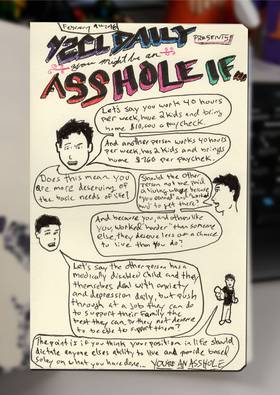 February 9, 2016
YZCL DAILY PRESENTS!!
you might be an
ASSHOLE IF...
Let's say you work 40 hours
per week, have 2 kids and bring
home $10,000 a paycheck.
And another person works 40 hours
per week, has 2 kids and brings
home $760 per paycheck.
Does this mean you
are more deserving of
the basic needs of life?
Should the other
person not be paid
a living wage because
you "earned" and "worked
hard to get there"?
And because you, and others like
you, worked "harder" than someone
else, they deserve less of a chance
to live than you do?
Let's say the other person has a
medically disabled child and they
themselves deal with anxiety
and depression daily, but push
through at a job they can do
to support their family the
best they can, do they not deserve
to be able to support them?
The point is if you think your position in life should
dictate anyone else's ability to live and provide based
soley on what you have done... YOU'RE AN ASSHOLE